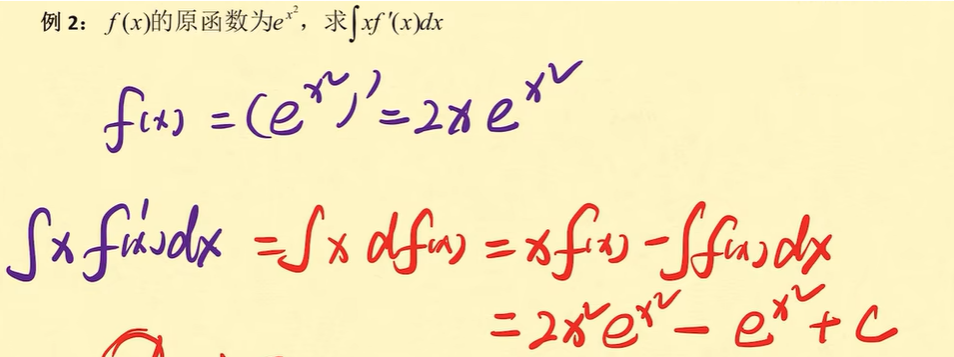 例 2：f(x)的原函数为e^{x^2}，求∫xf'(x)dx
f(x) = (e^{x^2})' = 2x e^{x^2}
∫x f'(x)dx = ∫x df(x) = x f(x) - ∫f(x)dx
= 2x^2 e^{x^2} - e^{x^2} + C